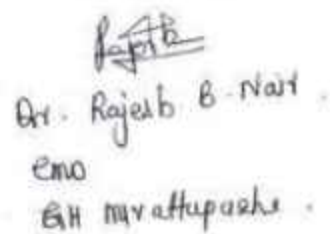 Dr. Rajesh B. Nair.
CMO
GH Muvattupuzha.